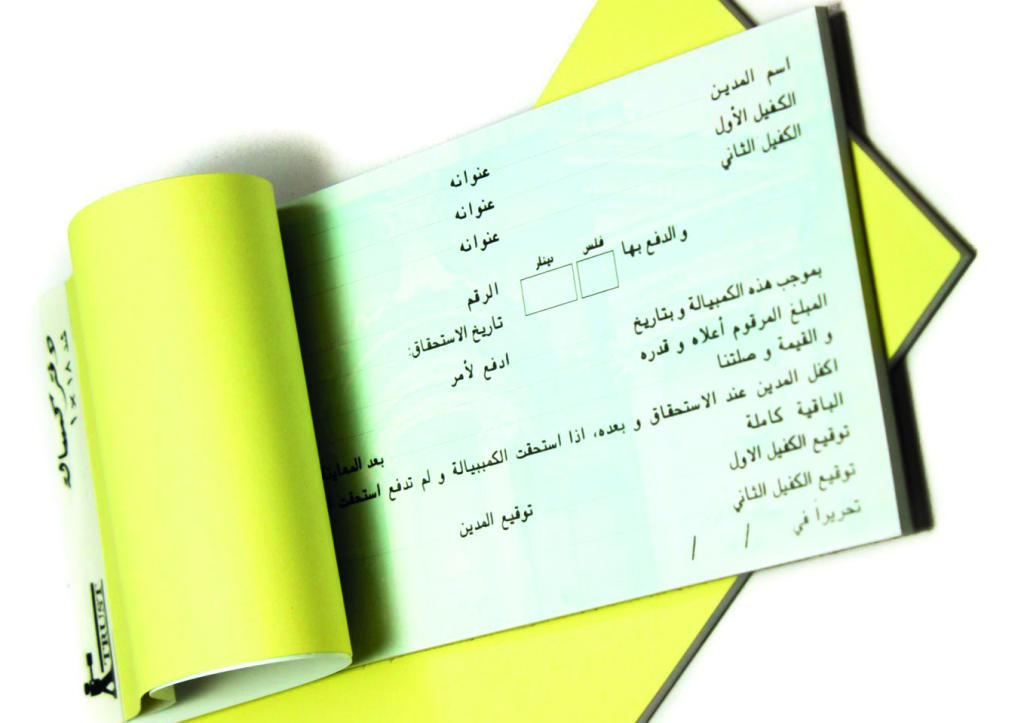 اسم المدين عنوانه
الكفيل الأول عنوانه
الكفيل الثاني عنوانه
و الدفع بها فلس دينار الرقم
تاريخ الاستحقاق:
بموجب هذه الكمبيالة و بتاريخ ادفع لأمر
المبلغ المرقوم أعلاه و قدره
و القيمة و صلتنا بعد المعاينة
اكفل المدين عند الاستحقاق و بعده، اذا استحقت الكمببيالة و لم تدفع استحقت
الباقية كاملة
توقيع الكفيل الاول توقيع المدين
توقيع الكفيل الثاني
تحريراً في / /
TRUST